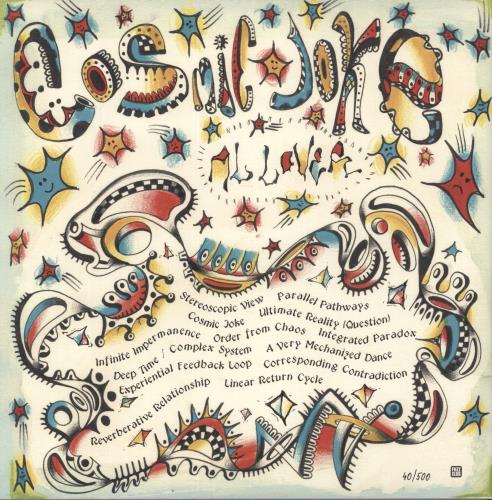 COSMIC JOKE
AL LOVER
Stereoscopic View Parallel Pathways
Cosmic Joke Ultimate Reality (Question)
Infinite Impermanence Order from Chaos Integrated Paradox
Deep Time / Complex System A Very Mechanized Dance
Experiential Feedback Loop Corresponding Contradiction
Reverberative Relationship Linear Return Cycle
40/500
FUZZ
CLUB